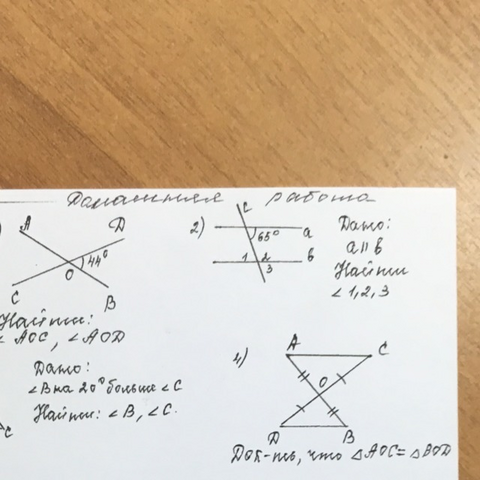 Домашняя работа
A
D
O
44°
C
B
Найти:
∠AOC, ∠AOD
2)
c
65°
a
1 2
b
3
Дано:
a || b
Найти
∠1,2,3
Дано:
∠B на 20° больше ∠C
Найти: ∠B, ∠C.
C
4)
A
C
O
D
B
Док-ть, что △AOC = △BOD